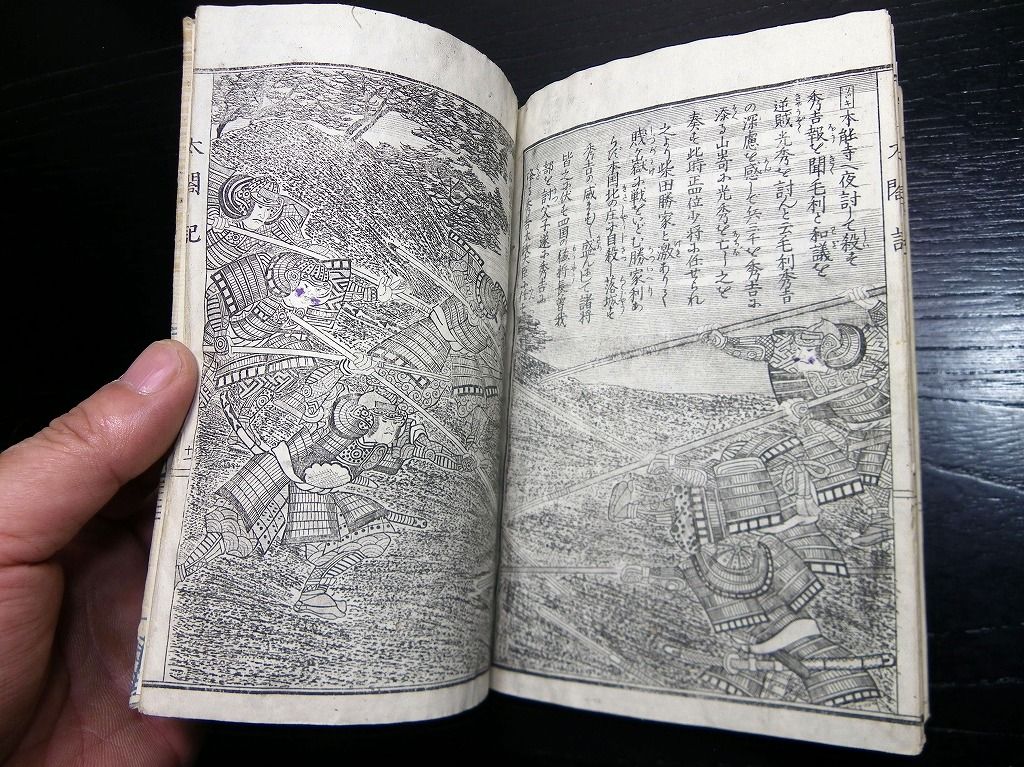 太閤記
本能寺へ夜討して殺を
秀吉報を聞毛利と和議を
逆賊光秀を討んと云毛利秀吉
の深慮を感じ兵三千を秀吉に
添る山嵜に光秀を亡し之を
奏も此時正四位少将に任せられ
之より柴田勝家と激あり
賤ヶ嶽に戦をいどむ勝家利あ
らず本国北の庄自殺し落城を
秀吉の威ます盛んにして諸将
皆之に伏も四国の猛将長曽我
部を討つ父子遂に秀吉に
太閤記